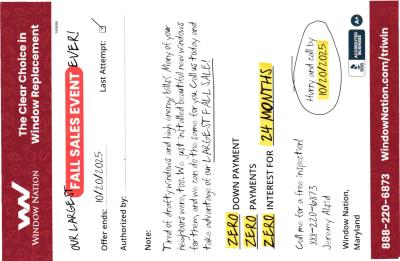 WINDOW NATION
The Clear Choice in
Window Replacement
OUR LARGEST FALL SALES EVENT EVER!
Offer ends: 10/20/2025
Last Attempt: ✓
Authorized by:
Note:
Tired of drafty windows and high energy bills? Many of your
neighbors were, too. We just installed beautiful new windows
for them, and we can do the same for you. Call us today and
take advantage of our LARGEST FALL SALE!
ZERO DOWN PAYMENT
ZERO PAYMENTS
ZERO INTEREST FOR 24 MONTHS
Call me for a free inspection!
888-220-6873
Jeremy Alzid
Hurry and call by
10/20/2025
Window Nation,
Maryland
BBB
ACCREDITED
BUSINESS
A+
888-220-6873 WindowNation.com/triwin